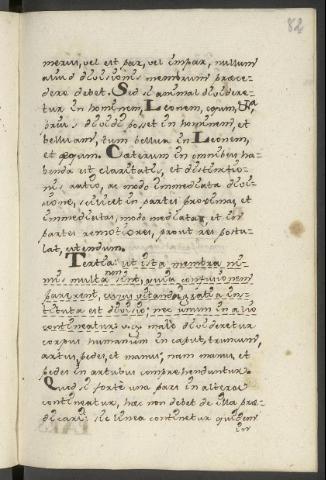 82
merus, vel est par, vel impar, nullum
aliud divisionis membrum præce-
dere debet. Sed si animal dividere-
tur in hominem, Leonem, equum, &a,
prius dividi posset in hominem, et
belluam, tum bellua in Leonem,
et equum. Cæterum in omnibus ha-
benda est claritatis, et distinctio-
nis ratio, ac modo immediata divi-
sione, scilicet in partes proximas, et
immediatas, modo mediata, et in
partes remotiores, prout res postu-
lat, utendum.
Tertia ut ista membra ni-
mis multa non sint, quia confusionem
parerent, cujus vitandæ gratia ins-
tituta est divisio; nec unum in alio
contineatur. vg. male divideretur
corpus humanum in caput, truncum,
artus, pedes, et manus, nam manus, et
pedes in artubus comprehenduntur.
Quod si forte una pars in altera
contineatur, hæc non debet de illa præ-
dicari: sic linea continetur quidem
in